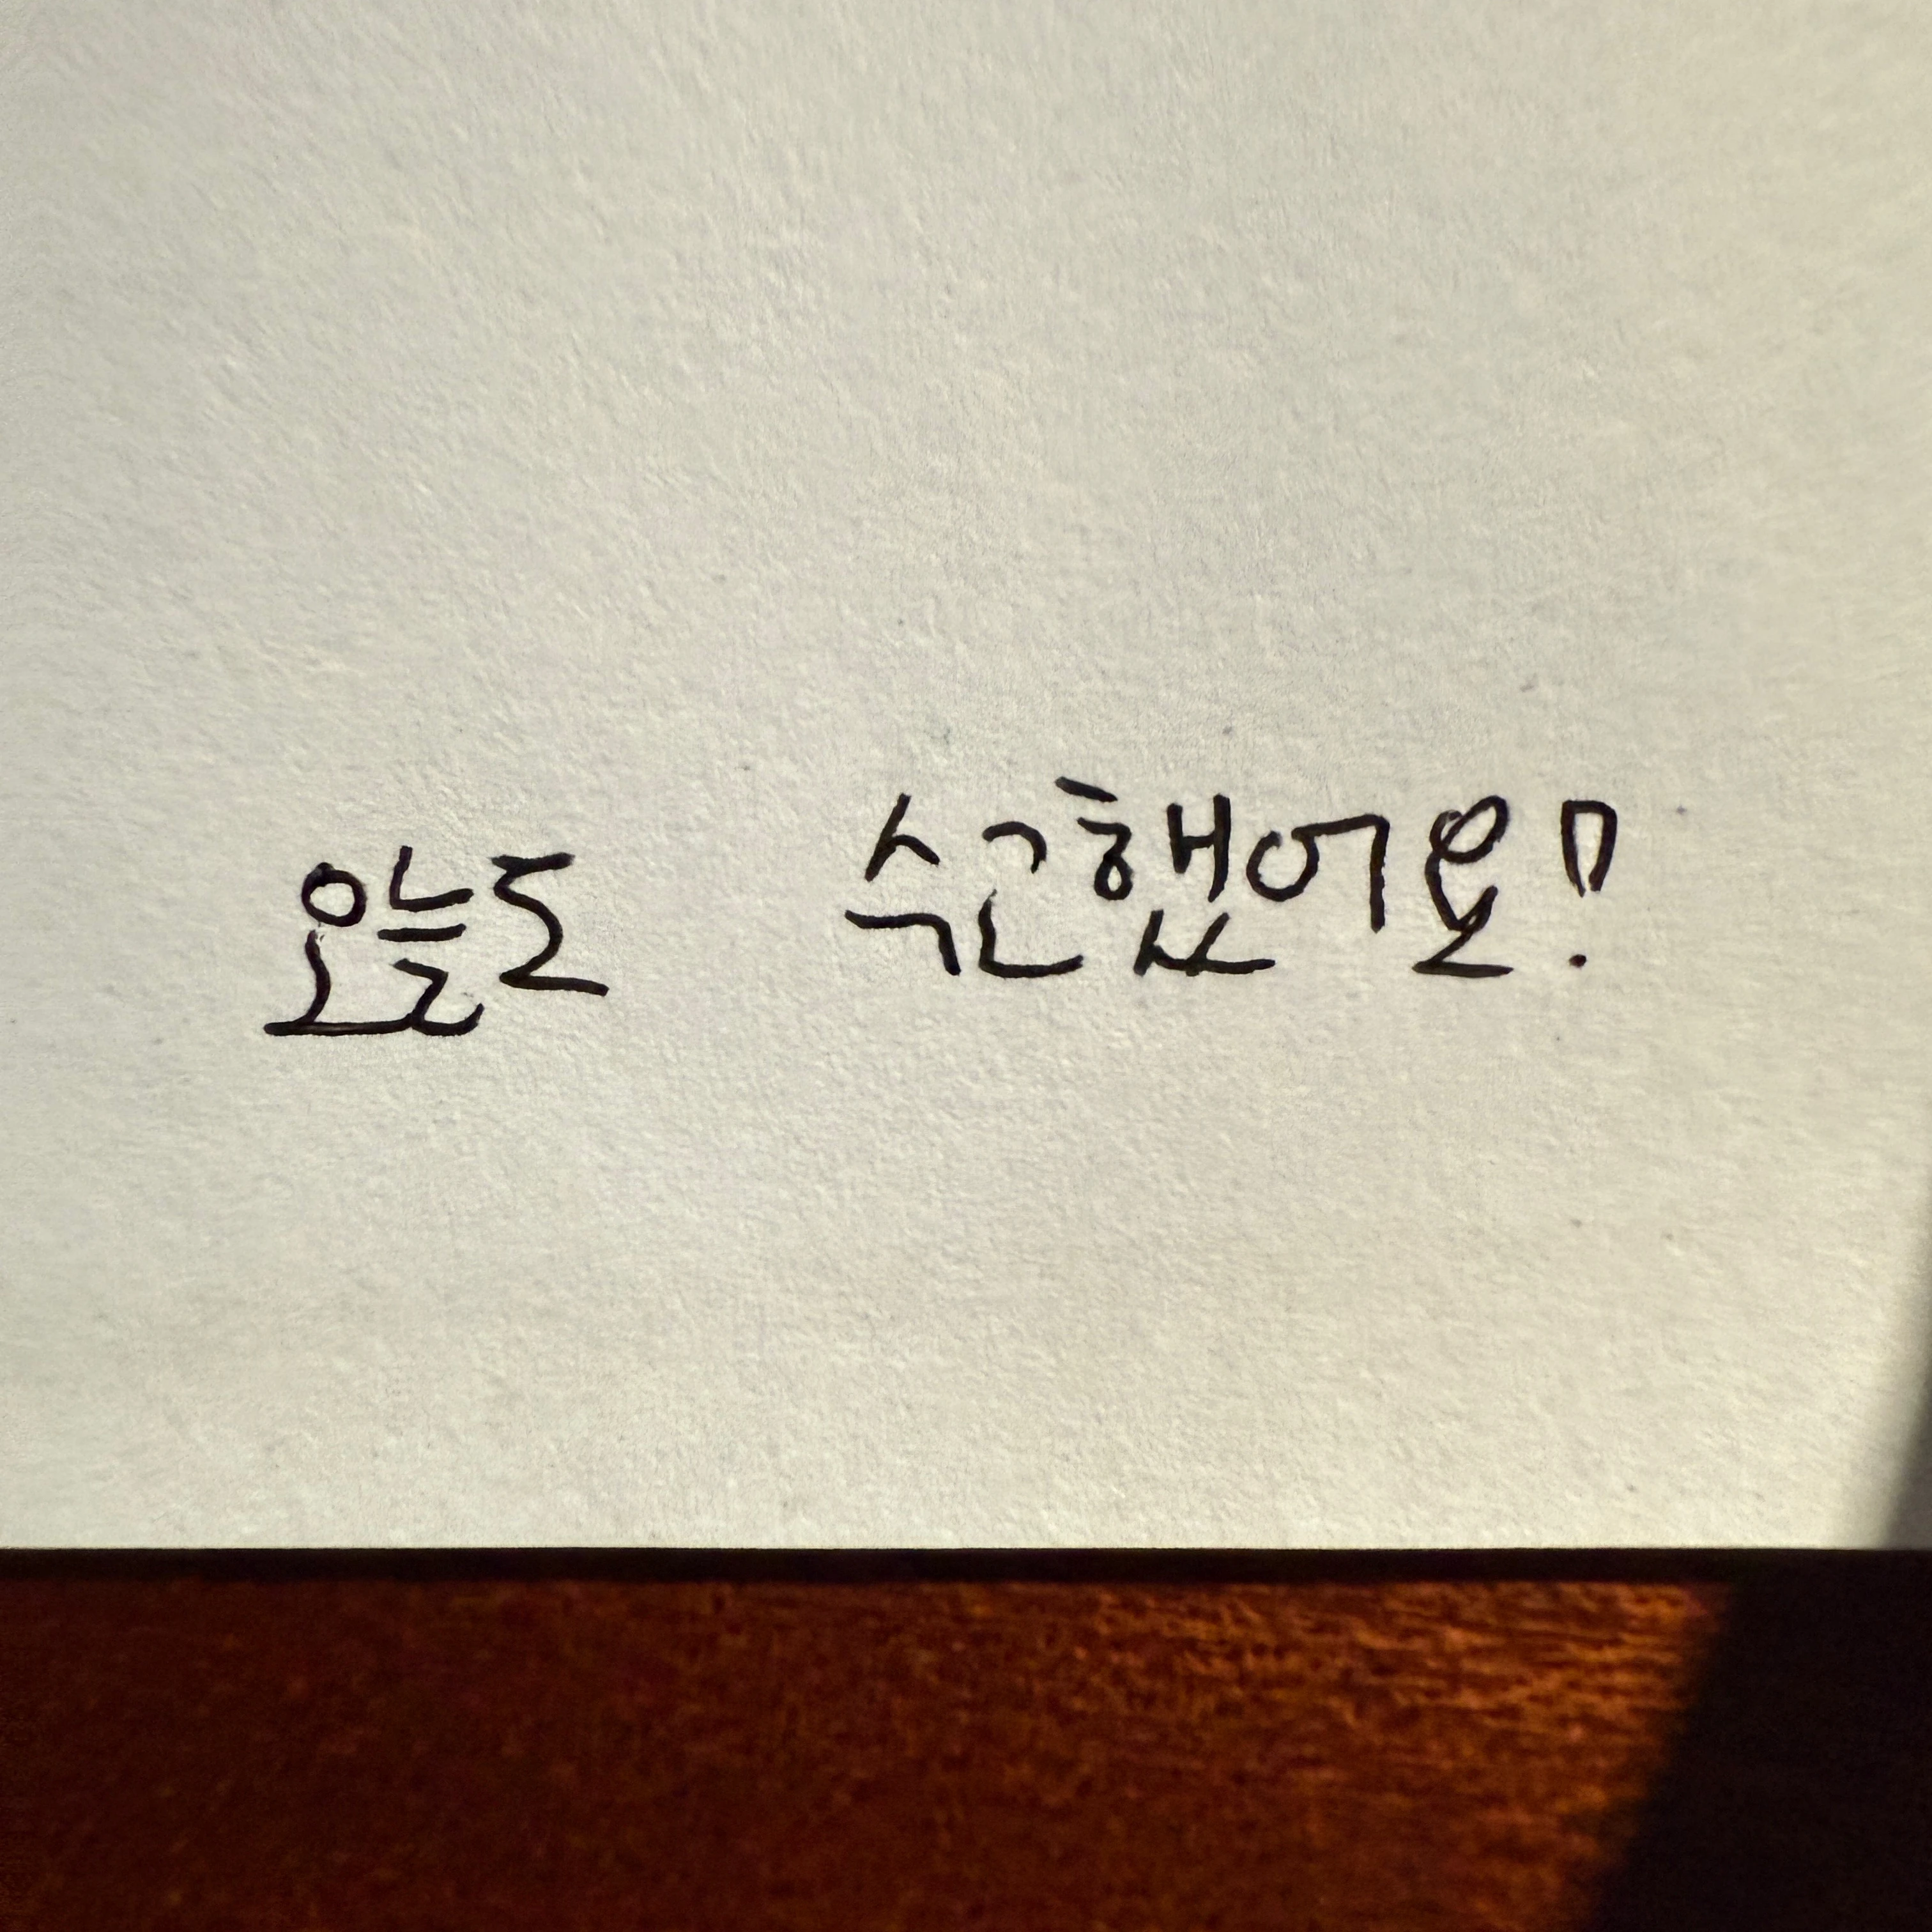 오늘도 수고했어요!